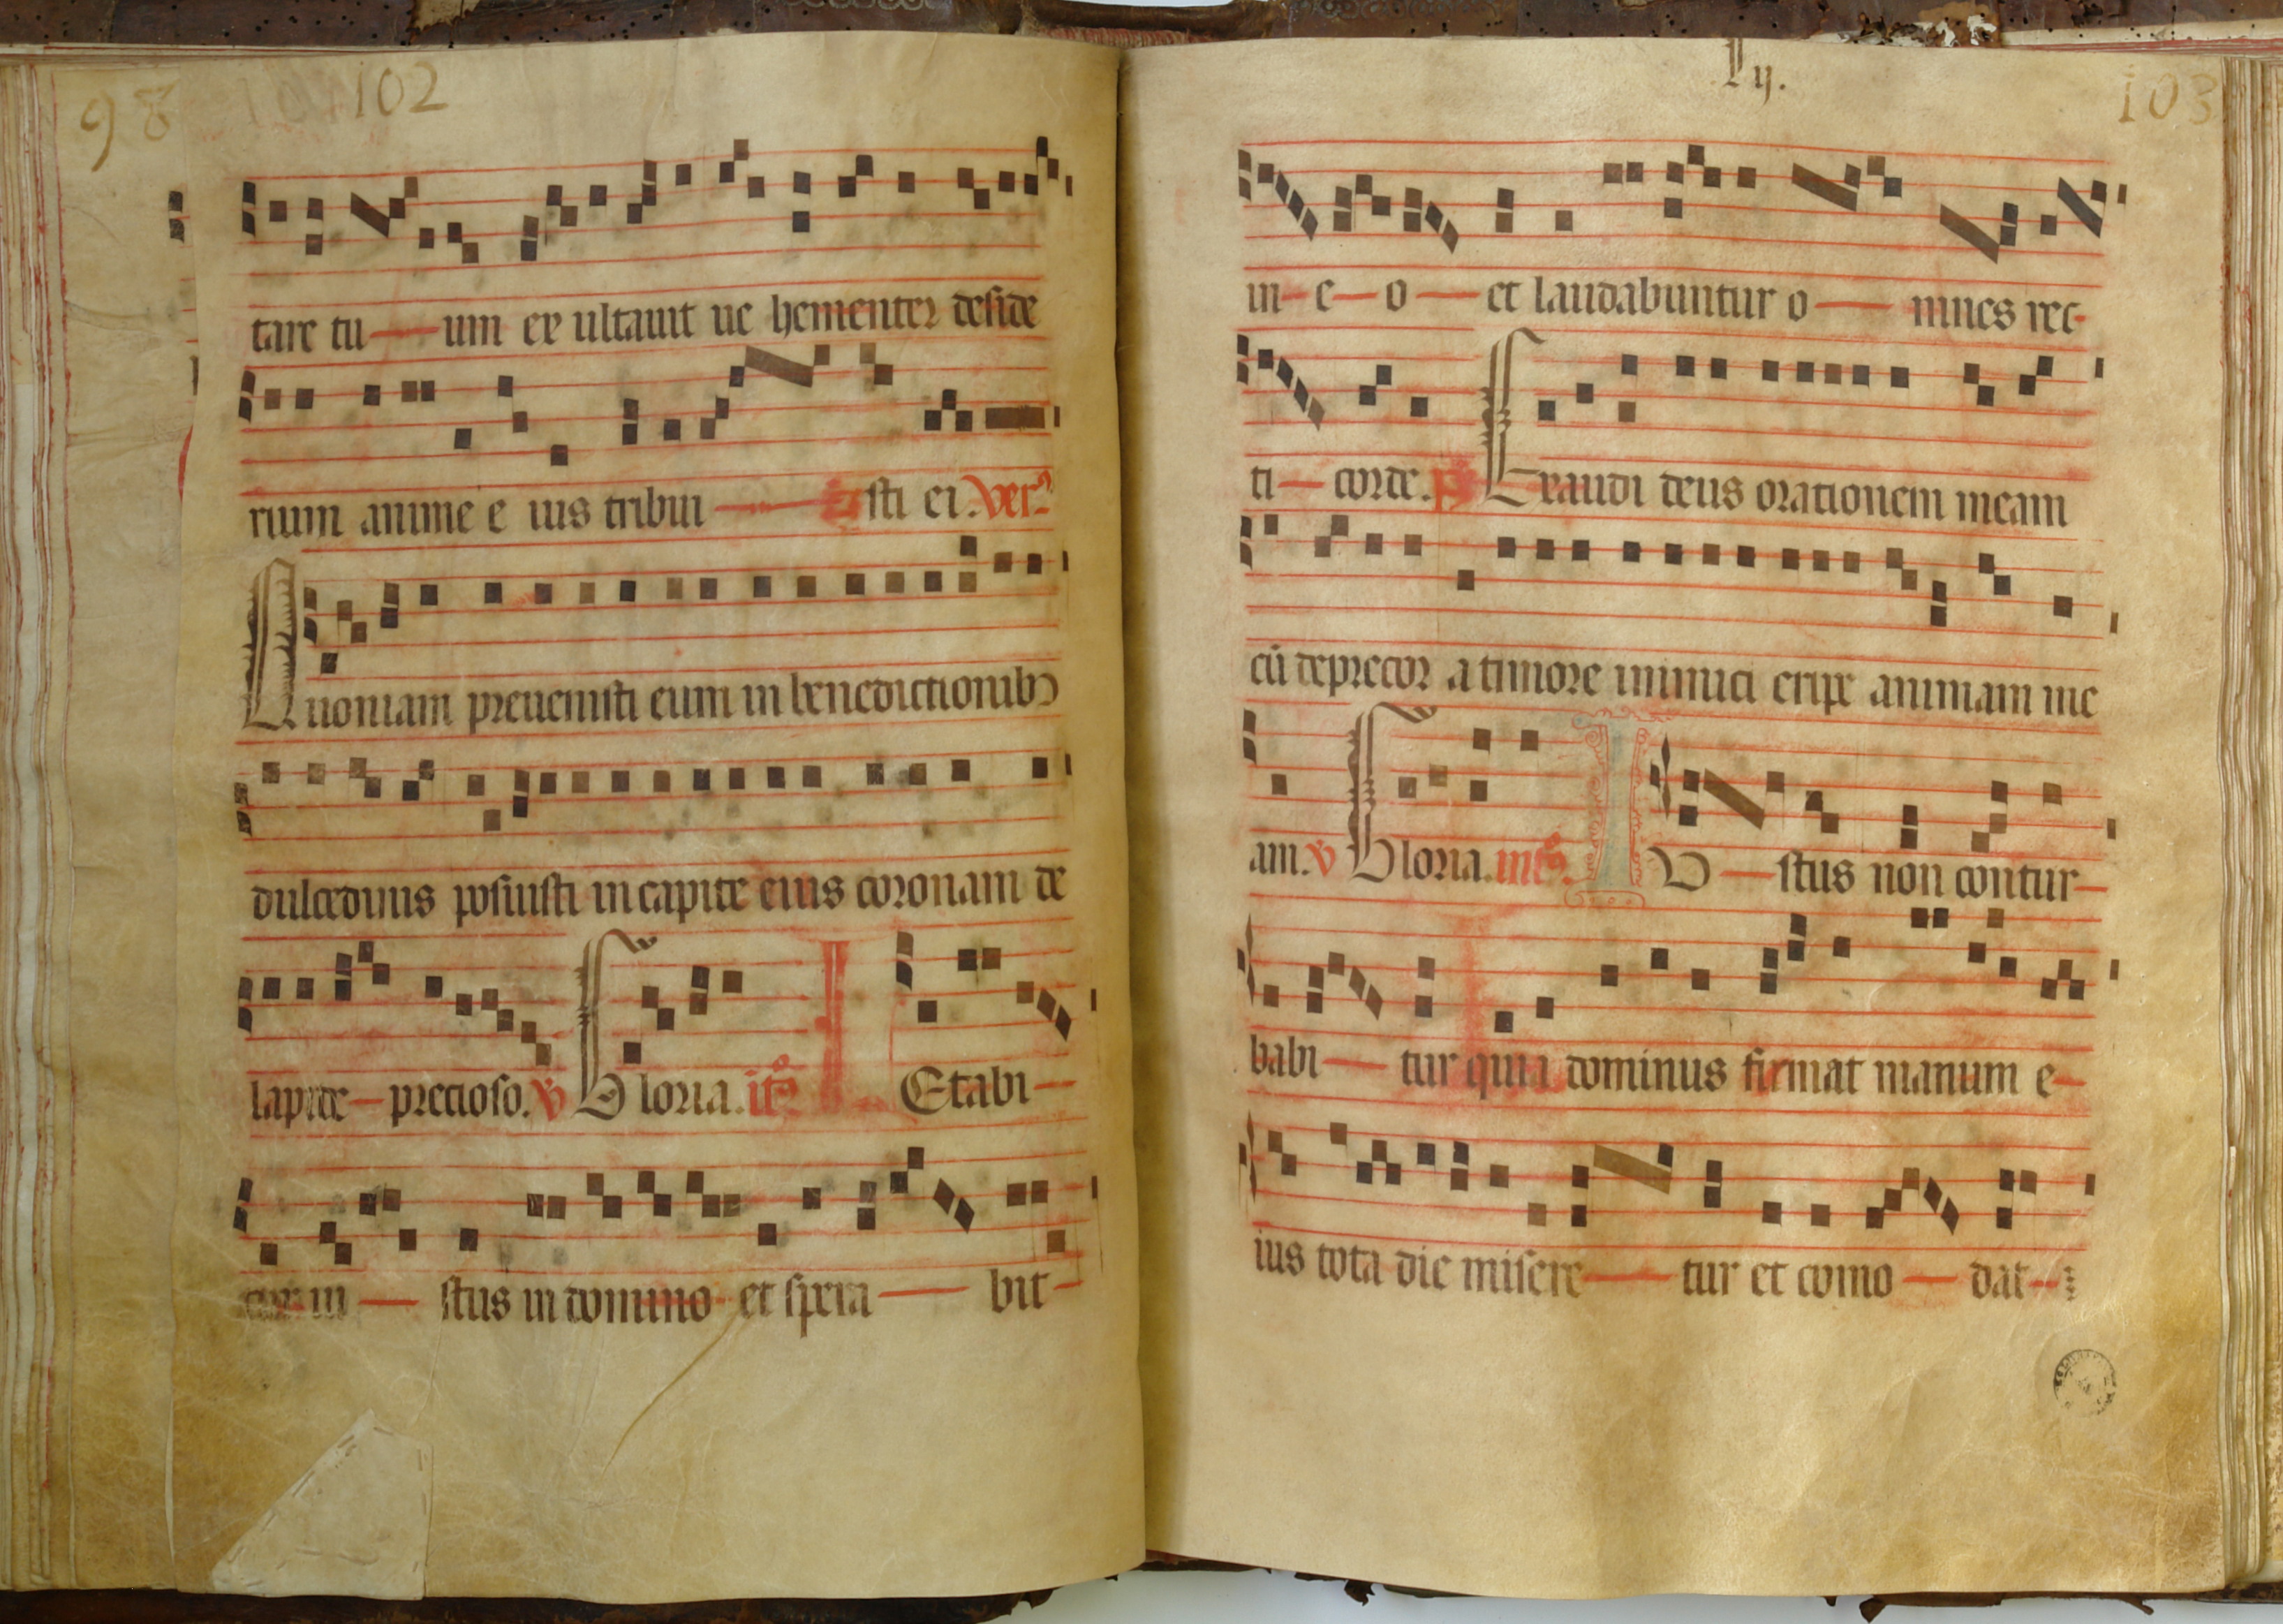 98
102
tare tu um ex ultauit ue hementer deside
rium anime e ius tribui sti ei. ver
Quoniam preuenisti eum in benedictionibꝰ
dulcedinis posuisti in capite eius coronam de
lapide precioso. v Gloria. itꝰ L Etabi
in stus in domino et spera bit
Lij.
103
in e o et laudabuntur o mnes rec
ti corde. p Exaudi deus orationem meam
cū deprecor a timore inimici eripe animam me
am. v Gloria. intꝰ. I U stus non contur
babi tur quia dominus firmat manum e
ius tota die misere tur et como dat